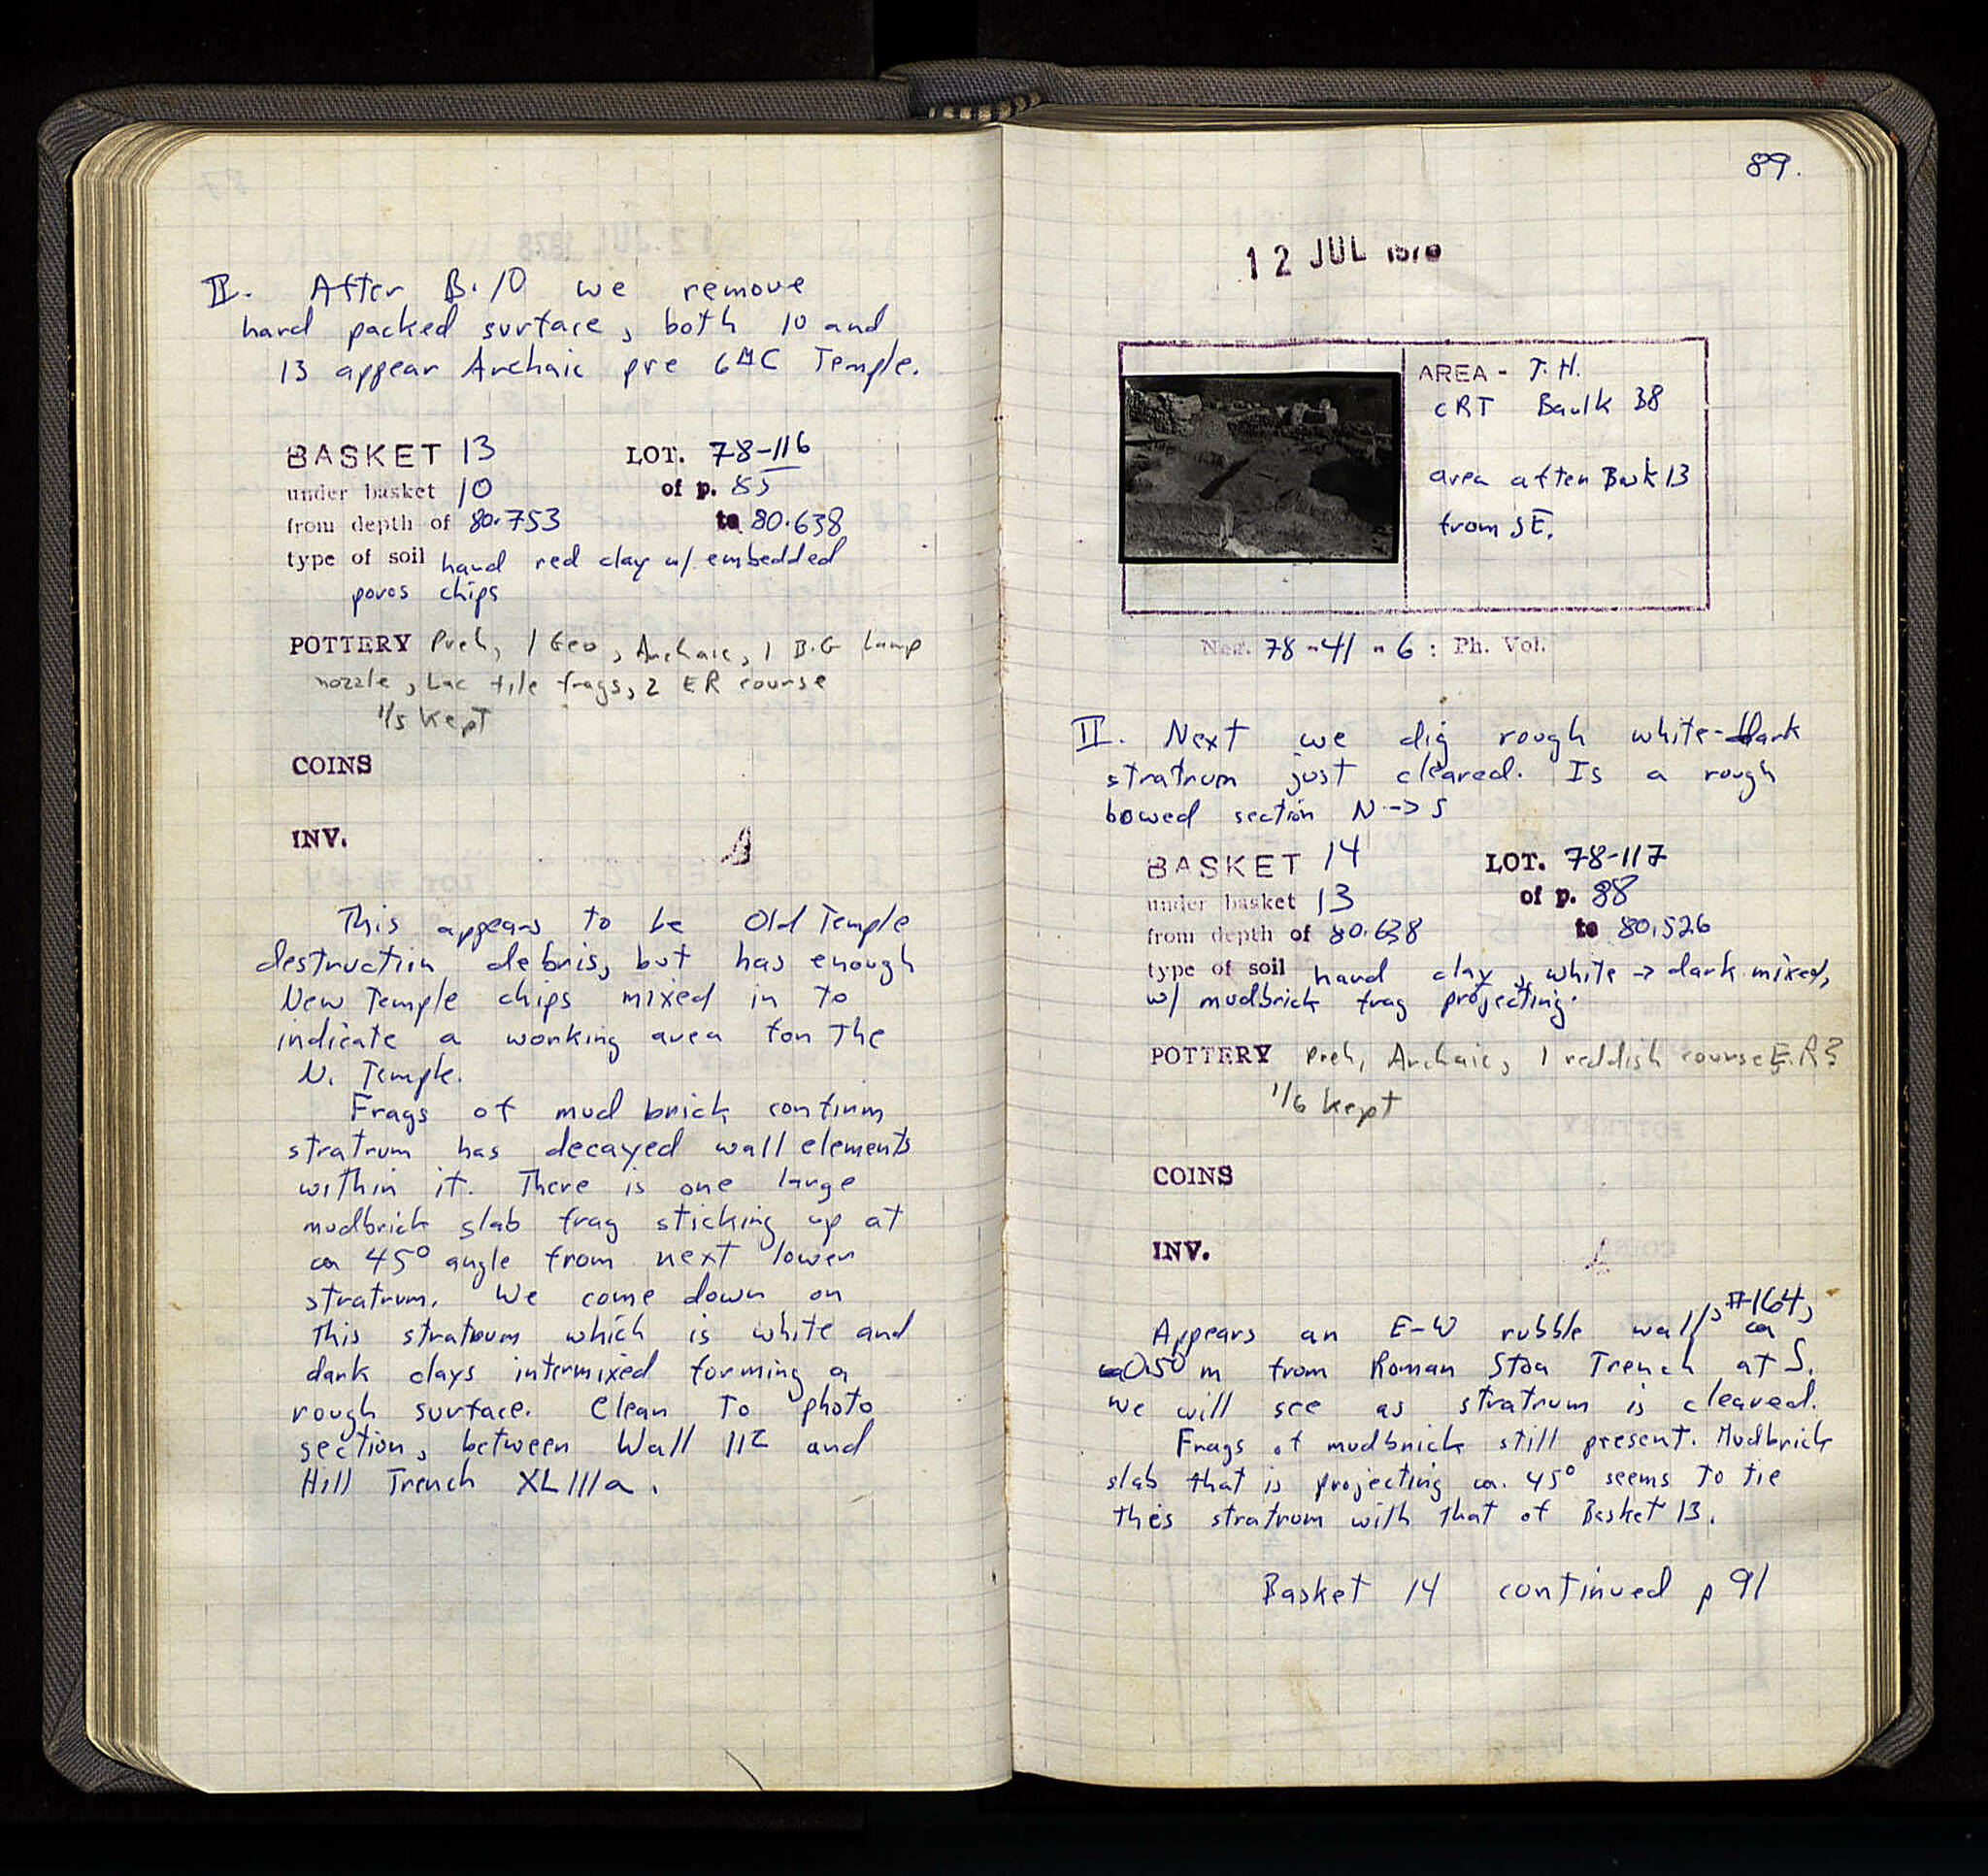 II. After B. 10 we remove
hard packed surface, both 10 and
13 appear Archaic pre 6thC Temple.
BASKET 13 LOT. 78-116
under basket 10 of p. 85
from depth of 80.753 to 80.638
type of soil hard red clay w/ embedded
poros chips
POTTERY Preh, 1 Geo, Archaic, 1 B.G lamp
nozzle, Lac tile frags, 2 ER course
1/5 kept
COINS
INV.
This appears to be Old Temple
destruction debris, but has enough
New Temple chips mixed in to
indicate a working area for the
N. Temple.
Frags of mud brick confirm
stratrum has decayed wall elements
within it. There is one large
mudbrick slab frag sticking up at
ca 45° angle from next lower
stratrum. We come down on
this stratrum which is white and
dark clays intermixed forming a
rough surface. Clean to photo
section, between Wall 112 and
Hill Trench XLIIIa.
89.
12 JUL 1978
AREA - T.H.
CRT Baulk 38
area after Bask 13
from SE.
Neg. 78-41-6 : Ph. Vol.
II. Next we dig rough white-dark
stratrum just cleared. Is a rough
bowed section N -> S
BASKET 14 LOT. 78-117
under basket 13 of p. 88
from depth of 80.638 to 80.526
type of soil hard clay, white -> dark mixed,
w/ mudbrick frag projecting.
POTTERY Preh, Archaic, 1 reddish course E.R?
1/6 kept
COINS
INV.
Appears an E-W rubble wall, #164, ca
0.50 m from Roman Stoa Trench at S.
We will see as stratrum is cleared.
Frags of mudbrick still present. Mudbrick
slab that is projecting ca. 45° seems to tie
this stratrum with that of Basket 13.
Basket 14 continued p 91